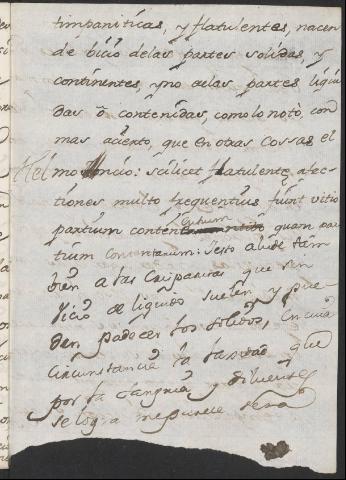 timpaniticas, y flatulentas, nacen
de bicio delas partes solidas, y
continentes, y no delas partes liqui
das ò contenidas, como lo notò, con
mas acierto, que en otras cossas el
Hel moncio: scilicet flatulente afec
tiones multo frequentius fiunt vitio
partium continentium quam par
tium contentarum: Iesto añade tam
bien a las
que sin
vicio de liquidos suelen y pue
den padecer los solidos, en cuia
circunstancia la
que
por la sangria y diluentes
se logra me parece sera